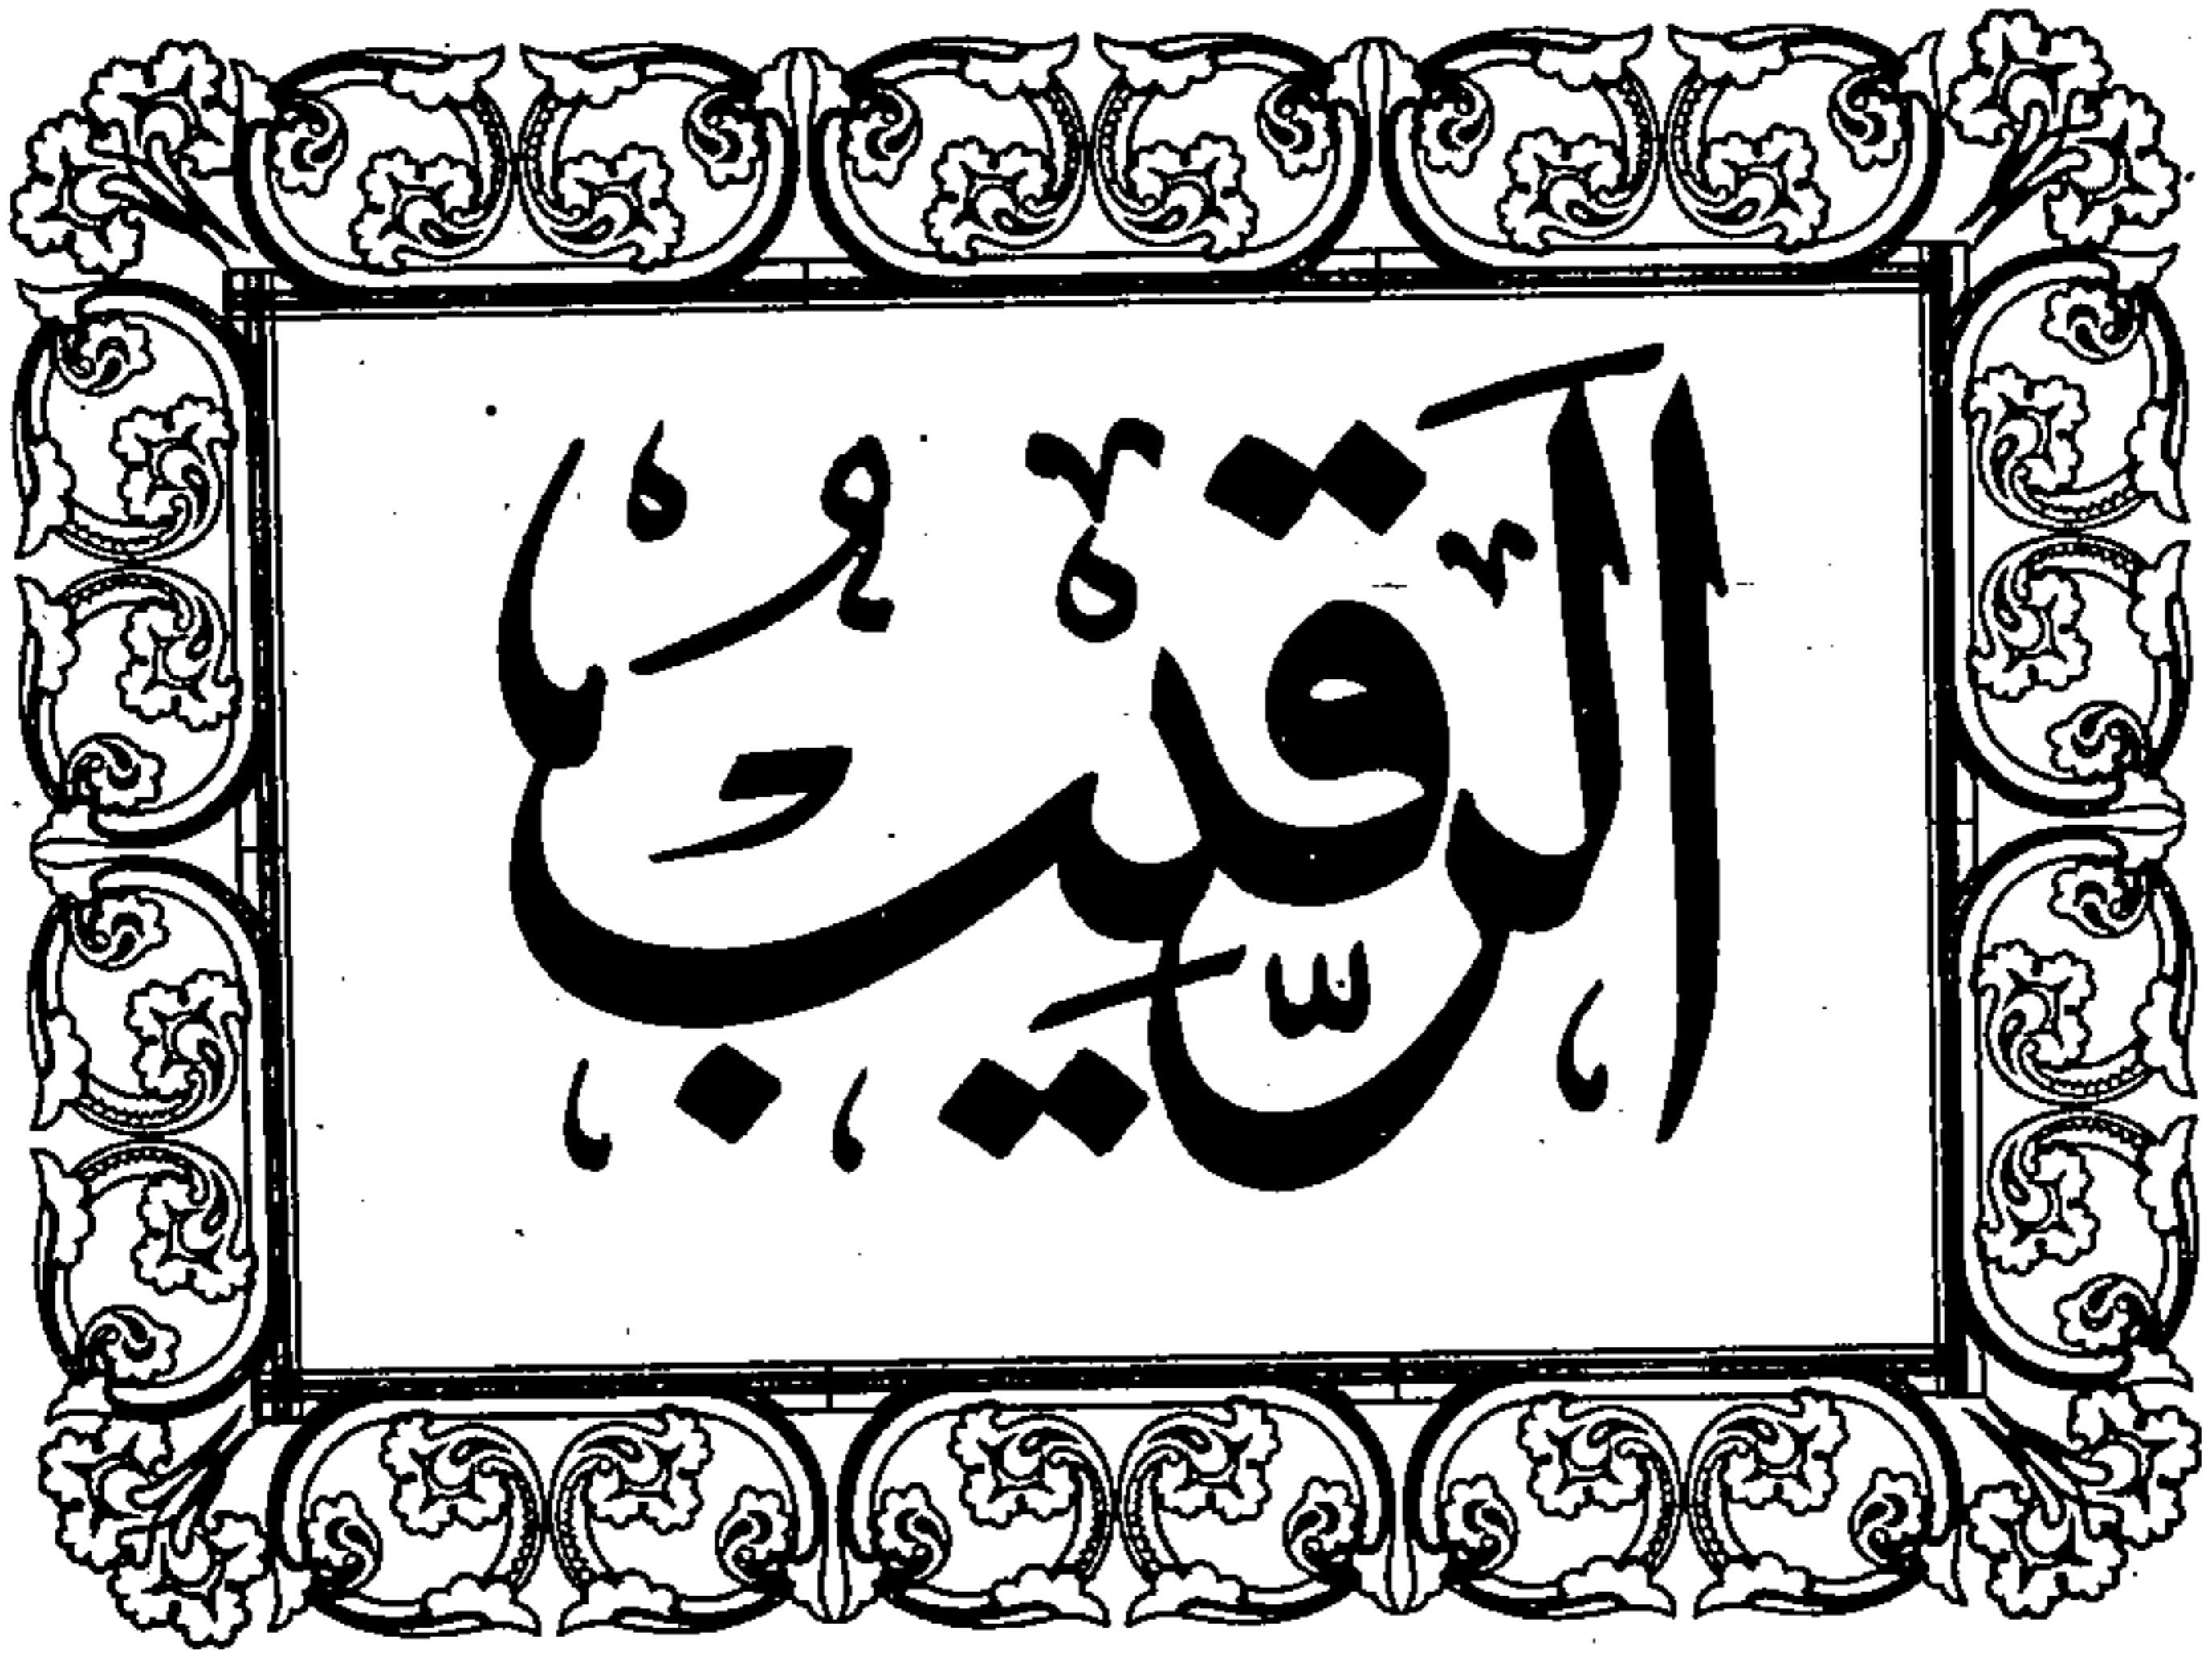 الرَّقِيبُ